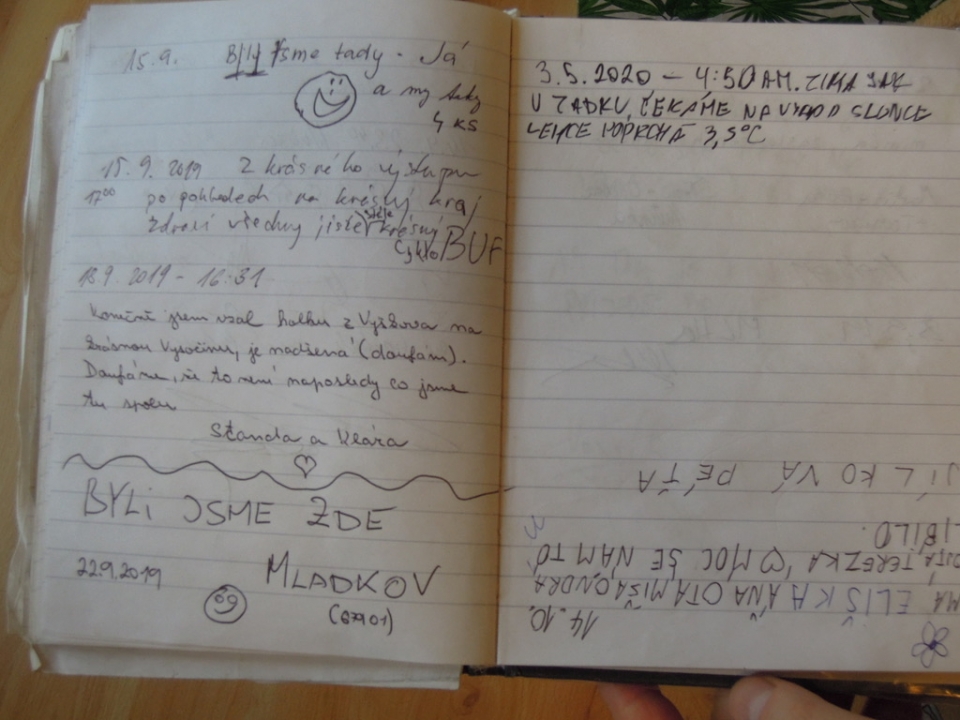 15.9. Byly jsme tady - Já
a my
4 ks
15.9.2019 z krásného výstupu
17⁰⁰ po pohledech na krásný kraj
zdraví všechny jistě stále krásný
Cyklo BUF
18.9.2019 - 16:31
Konečně jsem vzal holku z Vyškova na
krásnou Vysočinu, je nadšená (doufám).
Doufáme, že to není naposledy co jsme
tu spolu
Standa a Klára
BYLI JSME ZDE
22.9.2019 MLADKOV
(67901)
3.5.2020 - 4:50 AM. ZIMA JAK
V ZADKU, ČEKÁME NA VÝCHOD SLUNCE
LEHCE POPRCHÁ 3,5°C
14.10.
MA ELIŠKA ÁNA OTA MIŠA, ONDRA
TEREZKA MOC SE NÁM TO
LÍBILO.
JÍLKOVÁ PÉŤA